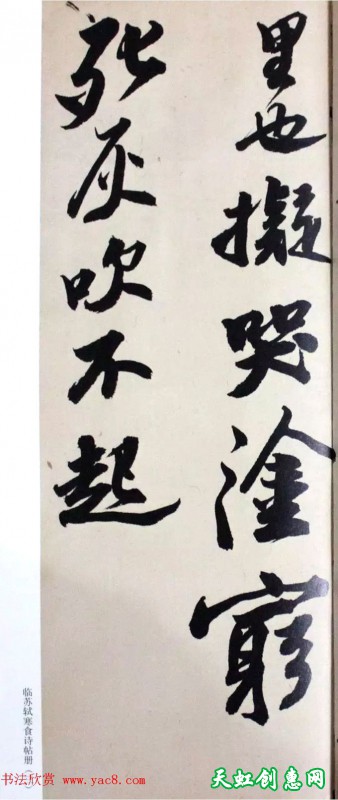 里也擬哭塗窮
死灰吹不起
临苏轼寒食诗帖册
书法欣赏 www.yac8.com
天虹创惠网